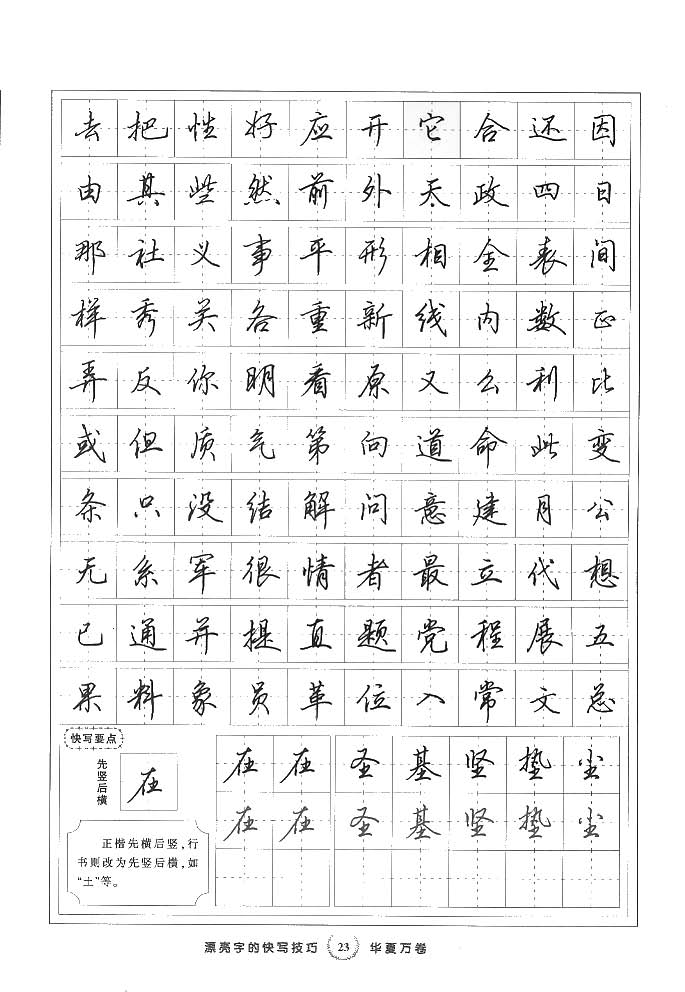 去把性好应开它合还因
由其些然前外天政四日
那社义事平形相全表间
样秀关各重新线内数正
弄反你明看原又么利比
或但质气第向道命此变
条只没结解问意建月公
无系军很情者最立代想
已通并提直题党程展五
果料象员革位入常文总
快写要点
先竖后横
在
正楷先横后竖，行
书则改为先竖后横，如
“土”等。
在在圣基坚垫尘
在在圣基坚垫尘
漂亮字的快写技巧 23 华夏万卷